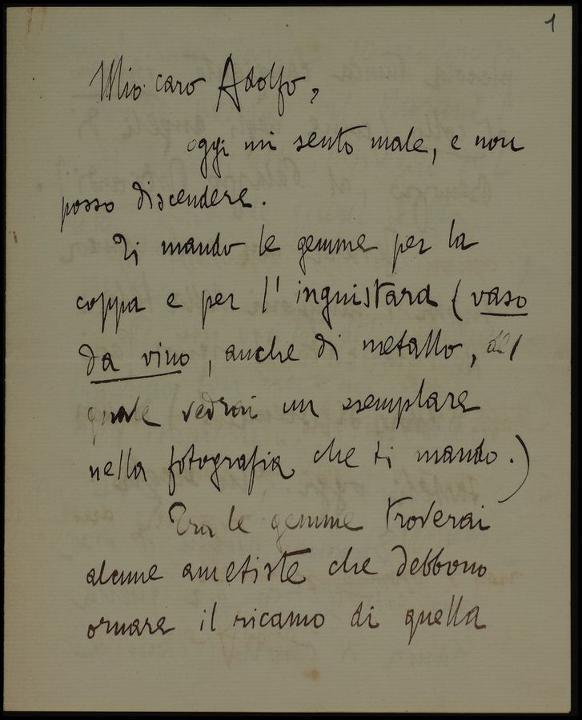 1
Mio caro Adolfo,
oggi mi sento male, e non
posso discendere.
Ti mando le gemme per la
coppa e per l'inguistara (vaso
da vino, anche di metallo, del
quale vedrai un esemplare
nella fotografia che ti mando.)
Tra le gemme troverai
alcune ametiste che debbono
ornare il ricamo di quella